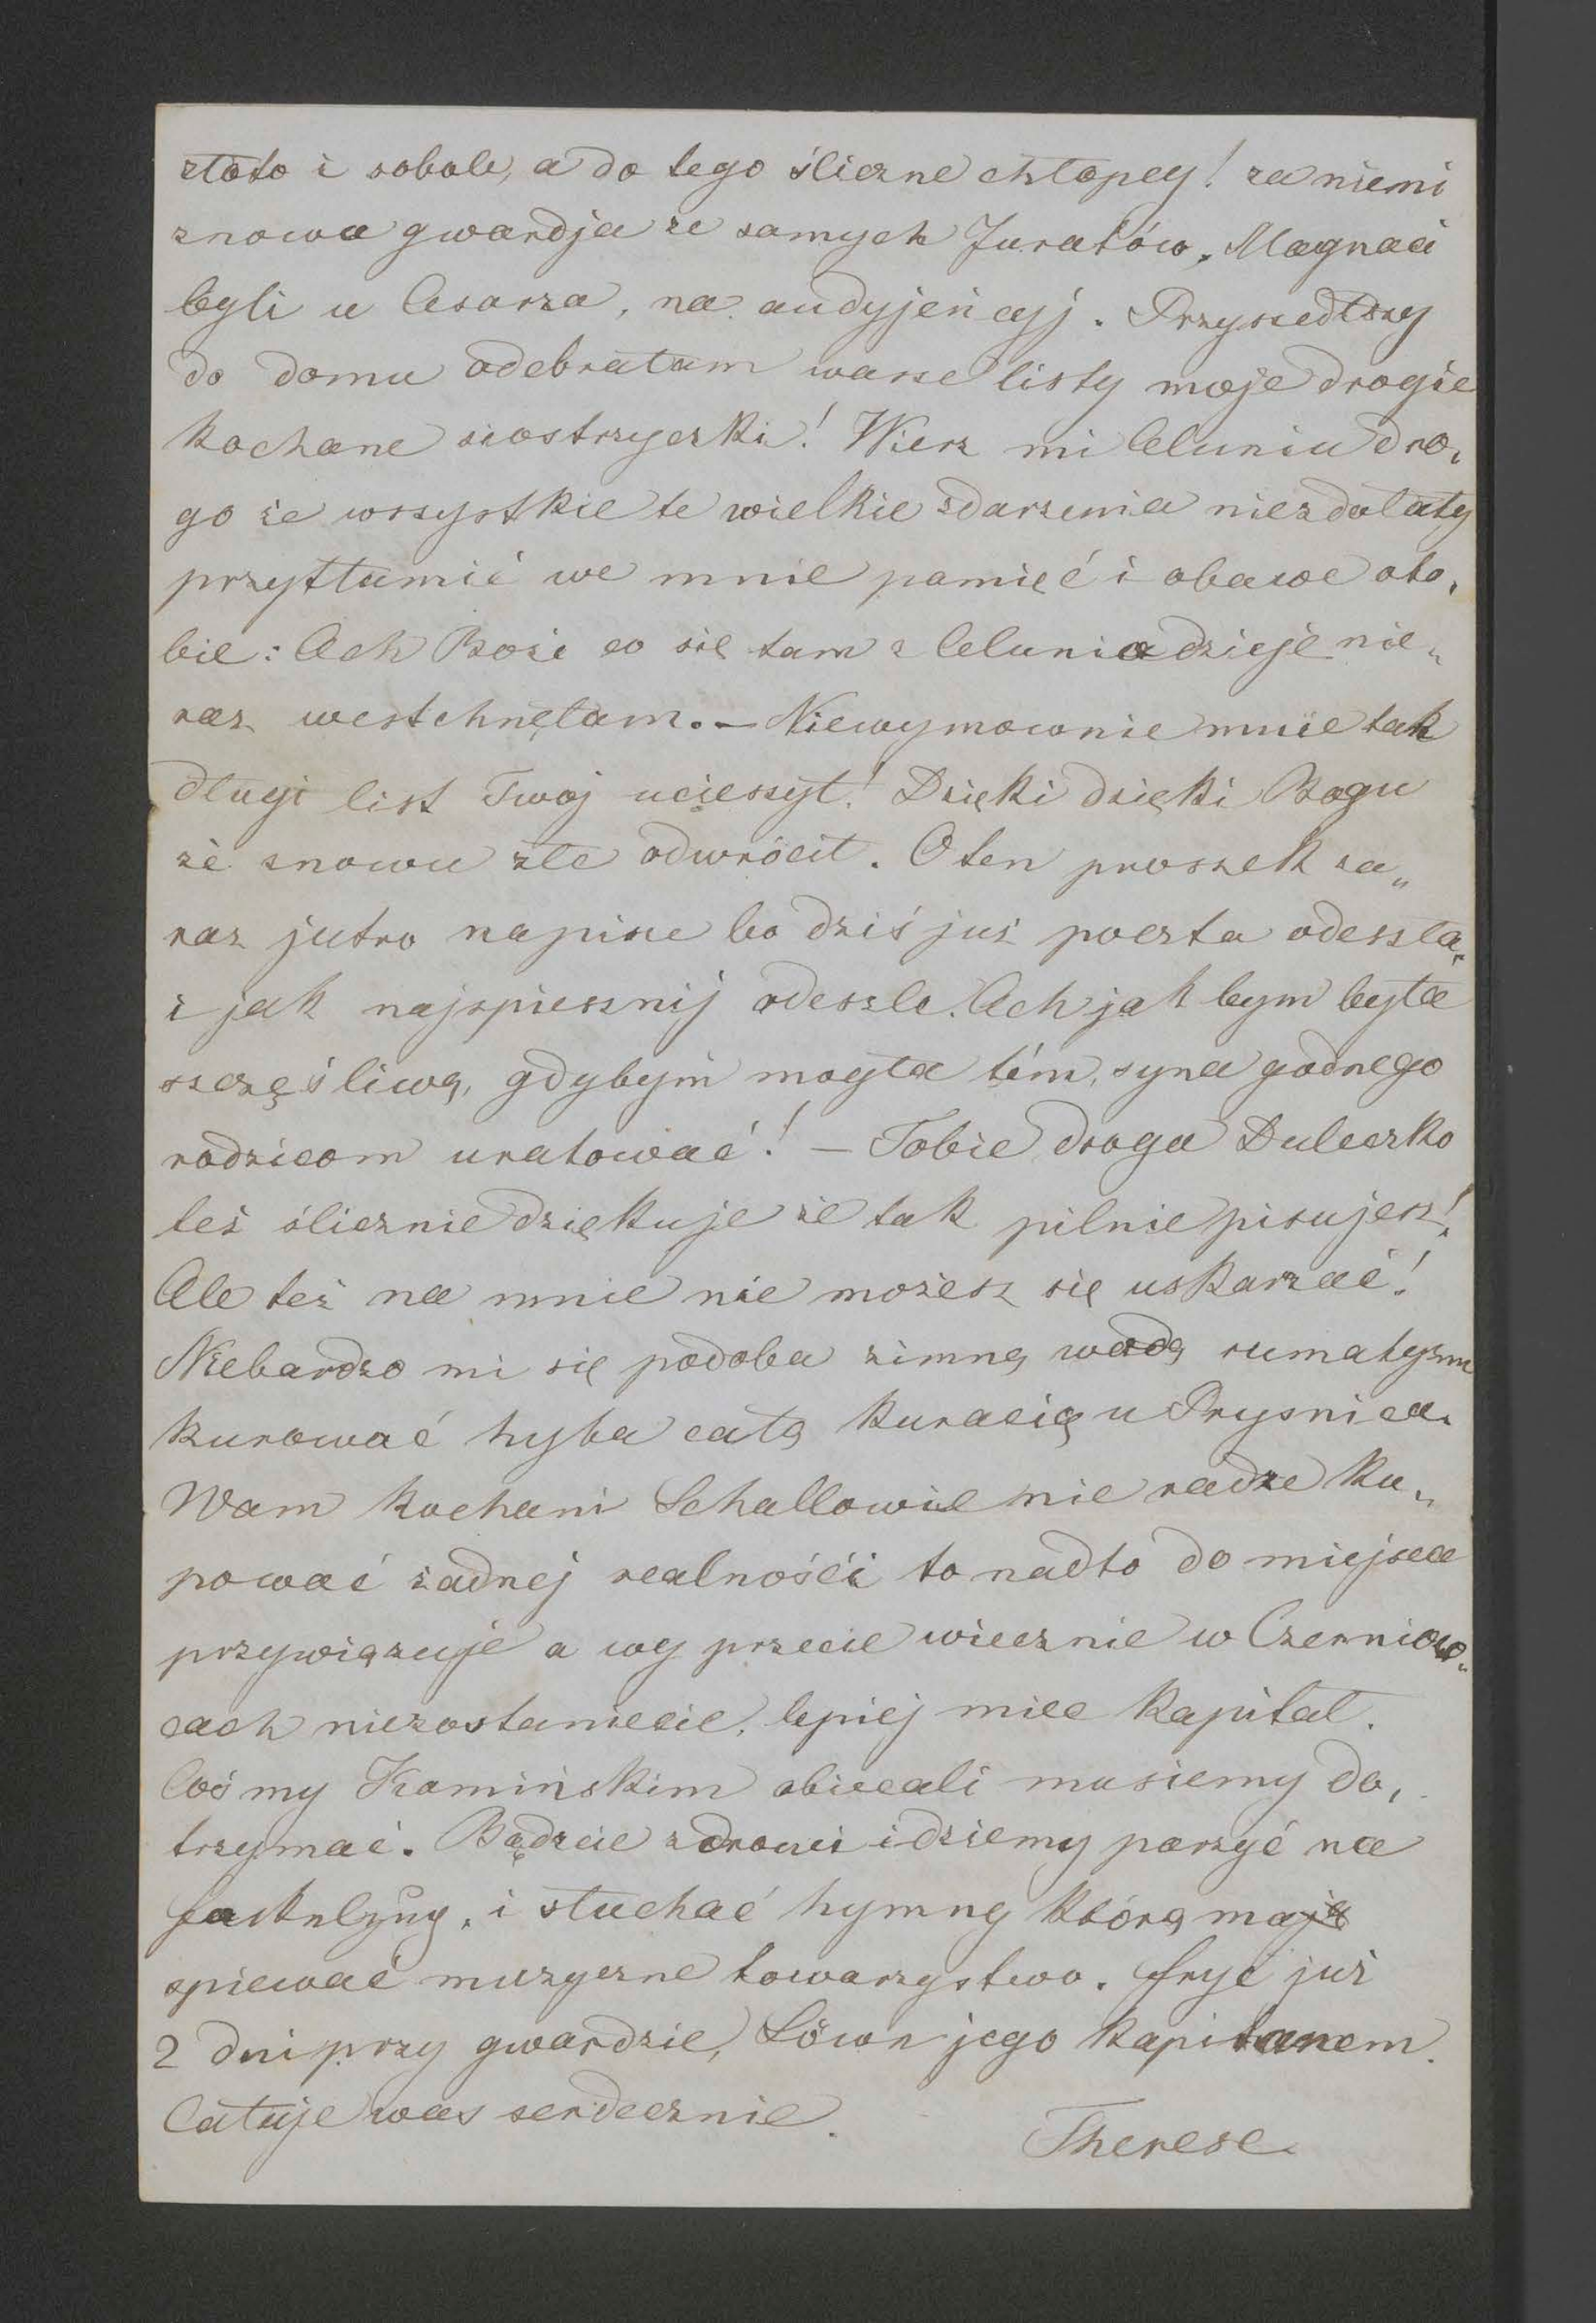 złoto i sobole, a do tego śliczne chłopcy! za niemi
znowu gwardja ze samych Juratów. Magnaci
byli u Cesarza, na audyjeńcyj. Przyszedłszy
do domu odebrałam wasze listy moje drogie
kochane siostrzyczki! Wierz mi Celuniu dro„
go że wszystkie te wielkie zdarzenia niezdołały
przytłumić we mnie pamięć i obawe oto„
bie: Ach Boże co się tam z Celunią dzieje nie„
raz westchnęłam. – Niewymownie mnie tak
długi list Twoj ucieszył! Dzięki dzięki Bogu
że znowu złe odwrócił. O ten proszek za„
raz jutro napisze bo dziś już poczta odeszła„
i jak najspiesznij odeszle. Ach jak bym była
szczęśliwą, gdybym mogła tém, syna godnego
rodzicom uratować! – Tobie droga Duleczko
też ślicznie dziękuje że tak pilnie pisujesz!
Ale też na mnie nie możesz się uskarzać!
Niebardzo mi się podoba zimną wodą rumatyzm
kurować hyba całą kuracią u Prysnica.
Wam kochani Schallowie nie radze ku„
pować żadnej realnośći to nadto do miejsca
przywiązuje a wy przecie wiecznie w Czerniow„
cach niezostaniecie, lepiej miec kapitał.
Coś my Kamińskim obiecali musiemy do„
trzymać. Bądzcie zdrowi idziemy parzyć na
Fackelzug, i słuchać hymny którą mają
spiewać muzyczne towarzystwo. Fryć już
2 dni przy gwardzie, Löwe jego kapitanem.
Całuje was serdecznie.
Therese